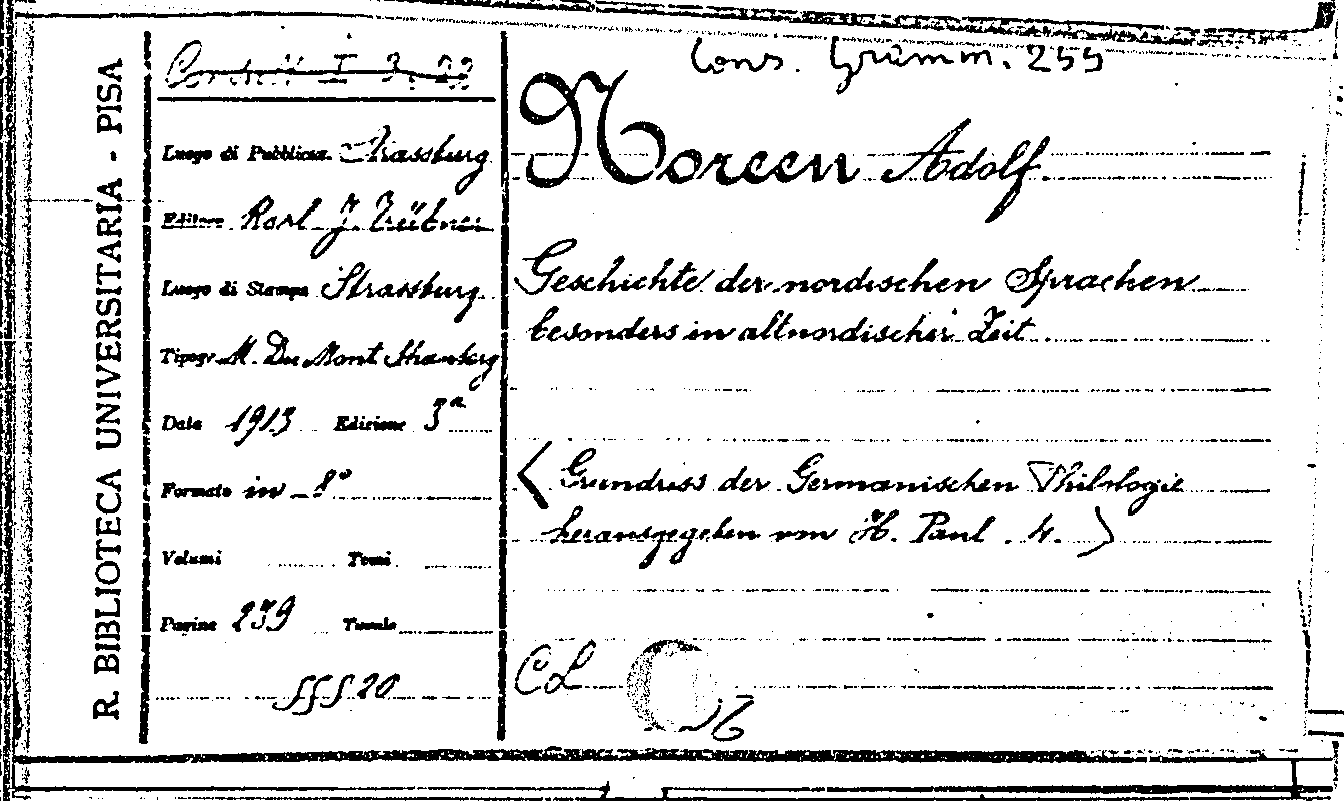 R. BIBLIOTECA UNIVERSITARIA - PISA
I 3. 23
Luogo di Pubblicaz. Strassburg
Editore Karl J. Trübner
Luogo di Stampa Strassburg
Tipogr. M. Du Mont Strassburg
Data 1913 Edizione 3ª
Formato in - 8°
Volumi Tomi
Pagine 239 Tavole
fff 20
Cons. Gramm. 255
Noreen Adolf.
Geschichte der nordischen Sprachen
besonders in altnordischer Zeit
< Grundriss der Germanischen Philologie
herausgegeben von H. Paul . 4. >
CL